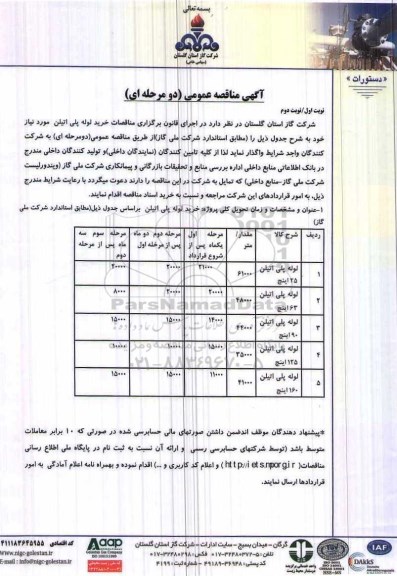 بسمه تعالی
شرکت گاز استان گلستان
(سهامی خاص)
« دستورات »
آگهی مناقصه عمومی (دو مرحله ای)
نوبت اول/نوبت دوم
شرکت گاز استان گلستان در نظر دارد در اجرای قانون برگزاری مناقصات خرید لوله پلی اتیلن مورد نیاز
خود به شرح جدول ذیل را (مطابق استاندارد شرکت ملی گاز)از طریق مناقصه عمومی(دومرحله ای) به شرکت
کنندگان واجد شرایط واگذار نماید لذا از کلیه تامین کنندگان (نمایندگان داخلی)و تولید کنندگان داخلی مندرج
در بانک اطلاعاتی منابع داخلی اداره بررسی منابع و تحقیقات بازرگانی و پیمانکاری شرکت ملی گاز (ویندورلیست
شرکت ملی گاز -منابع داخلی) که تمایل به شرکت در این مناقصه را دارند دعوت میگردد با رعایت شرایط مندرج
ذیل، به امور قراردادهای این شرکت مراجعه و نسبت به خرید اسناد مناقصه اقدام نمایند.
۱-عنوان و مشخصات و زمان تحویل کلی پروژه: خرید لوله پلی اتیلن براساس جدول ذیل(مطابق استاندارد شرکت ملی
گاز)
ردیف شرح کالا مقدار/متر مرحله اول یکماه پس از شروع قرارداد مرحله دوم دو ماه پس از مرحله اول مرحله سوم سه ماه پس از مرحله دوم
۱ لوله پلی اتیلن ۲۵اینچ ۶۱۰۰۰ ۲۱۰۰۰ ۲۰۰۰۰ ۲۰۰۰۰
۲ لوله پلی اتیلن ۶۳اینچ ۴۸۰۰۰ ۲۰۰۰۰ ۲۰۰۰۰ ۸۰۰۰
۳ لوله پلی اتیلن ۹۰اینچ ۴۴۰۰۰ ۱۴۰۰۰ ۱۵۰۰۰ ۱۵۰۰۰
۴ لوله پلی اتیلن ۱۲۵اینچ ۳۵۰۰۰ ۱۵۰۰۰ ۱۰۰۰۰ ۱۰۰۰۰
۵ لوله پلی اتیلن ۱۶۰اینچ ۴۱۰۰۰ ۱۱۰۰۰ ۱۵۰۰۰ ۱۵۰۰۰
ParsNamadData
۰۲۱-۸۸۳۴۹۶۷۰-۵
*پیشنهاد دهندگان موقف اندضمن داشتن صورتهای مالی حسابرسی شده در صورتی که ۱۰ برابر معاملات
متوسط باشد (توسط شرکتهای حسابرسی رسمی و ارائه آن نسبت به ثبت نام در پایگاه ملی اطلاع رسانی
مناقصات( http://iets.mporg.ir ) و اعلام کد کاربری و ...) اقدام نموده و بهمراه نامه اعلام آمادگی به امور
قراردادها ارسال نمایند.
گرگان - میدان بسیج - سایت ادارات - شرکت گاز استان گلستان
کد اقتصادی
www.nigc-golestan.ir
Email : info@nigc-golestan.ir
Aaap
DAkkS
IAF